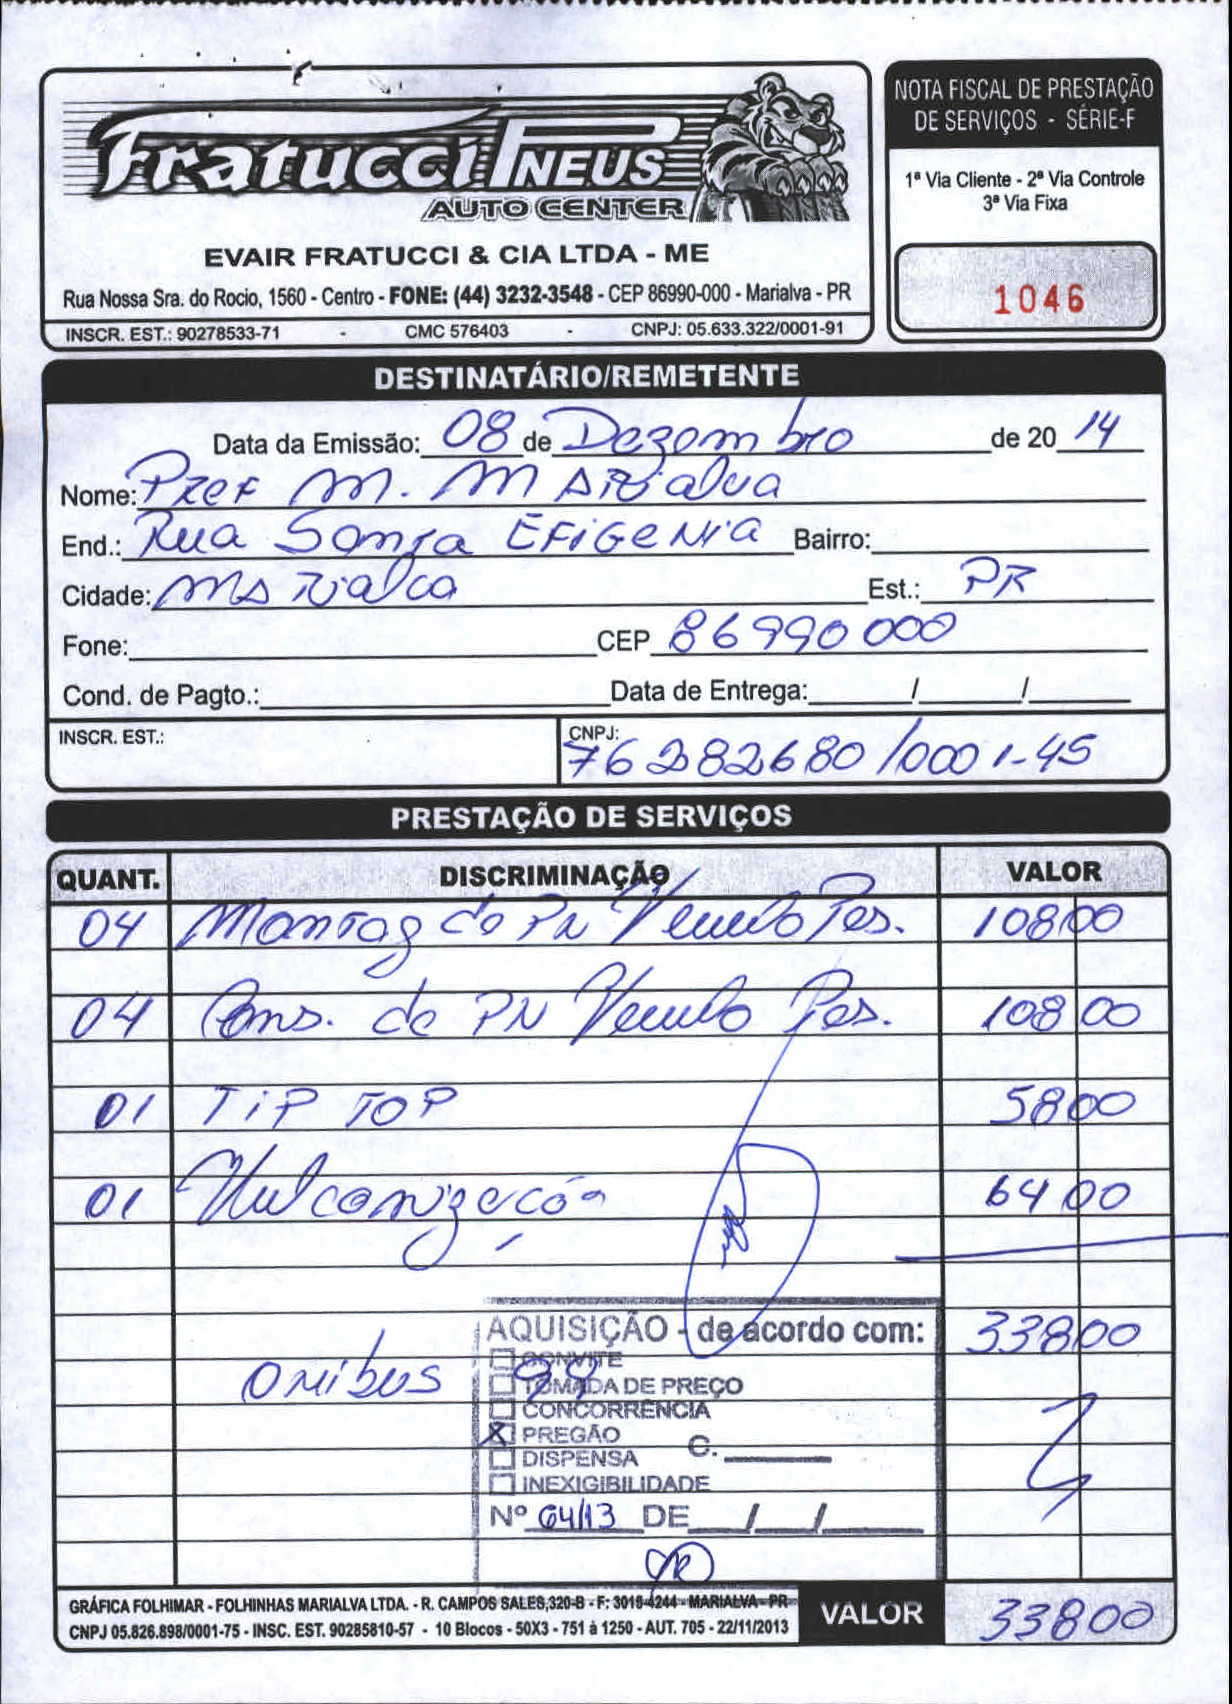 Fratucci PNEUS
AUTO CENTER
EVAIR FRATUCCI & CIA LTDA - ME
Rua Nossa Sra. do Rocio, 1560 - Centro - FONE: (44) 3232-3548 - CEP 86990-000 - Marialva - PR
INSCR. EST.: 90278533-71 - CMC 576403 - CNPJ: 05.633.322/0001-91
NOTA FISCAL DE PRESTAÇÃO
DE SERVIÇOS - SÉRIE-F
1ª Via Cliente - 2ª Via Controle
3ª Via Fixa
1046
DESTINATÁRIO/REMETENTE
Data da Emissão: 08 de Dezembro de 20 14
Nome: Pref M. Marialva
End.: Rua Santa Efigenia Bairro:
Cidade: Marialva Est.: PR
Fone: CEP 86990000
Cond. de Pagto.: Data de Entrega: / /
INSCR. EST.: CNPJ: 76282680/0001-45
PRESTAÇÃO DE SERVIÇOS
QUANT. DISCRIMINAÇÃO VALOR
04 Montag de PN Veiculo Pes. 108 00
04 Cons. de PN Veiculo Pes. 108 00
01 TIP TOP 58 00
01 Vulcanização 64 00
AQUISIÇÃO - de acordo com: 338 00
CONVITE
Onibus 94
TOMADA DE PREÇO
CONCORRÊNCIA
X PREGÃO C.
DISPENSA
INEXIGIBILIDADE
Nº 64/13 DE / /
GRÁFICA FOLHIMAR - FOLHINHAS MARIALVA LTDA. - R. CAMPOS SALES,320-B - F: 3015-4244 - MARIALVA - PR
CNPJ 05.826.898/0001-75 - INSC. EST. 90285810-57 - 10 Blocos - 50X3 - 751 à 1250 - AUT. 705 - 22/11/2013
VALOR 338 00